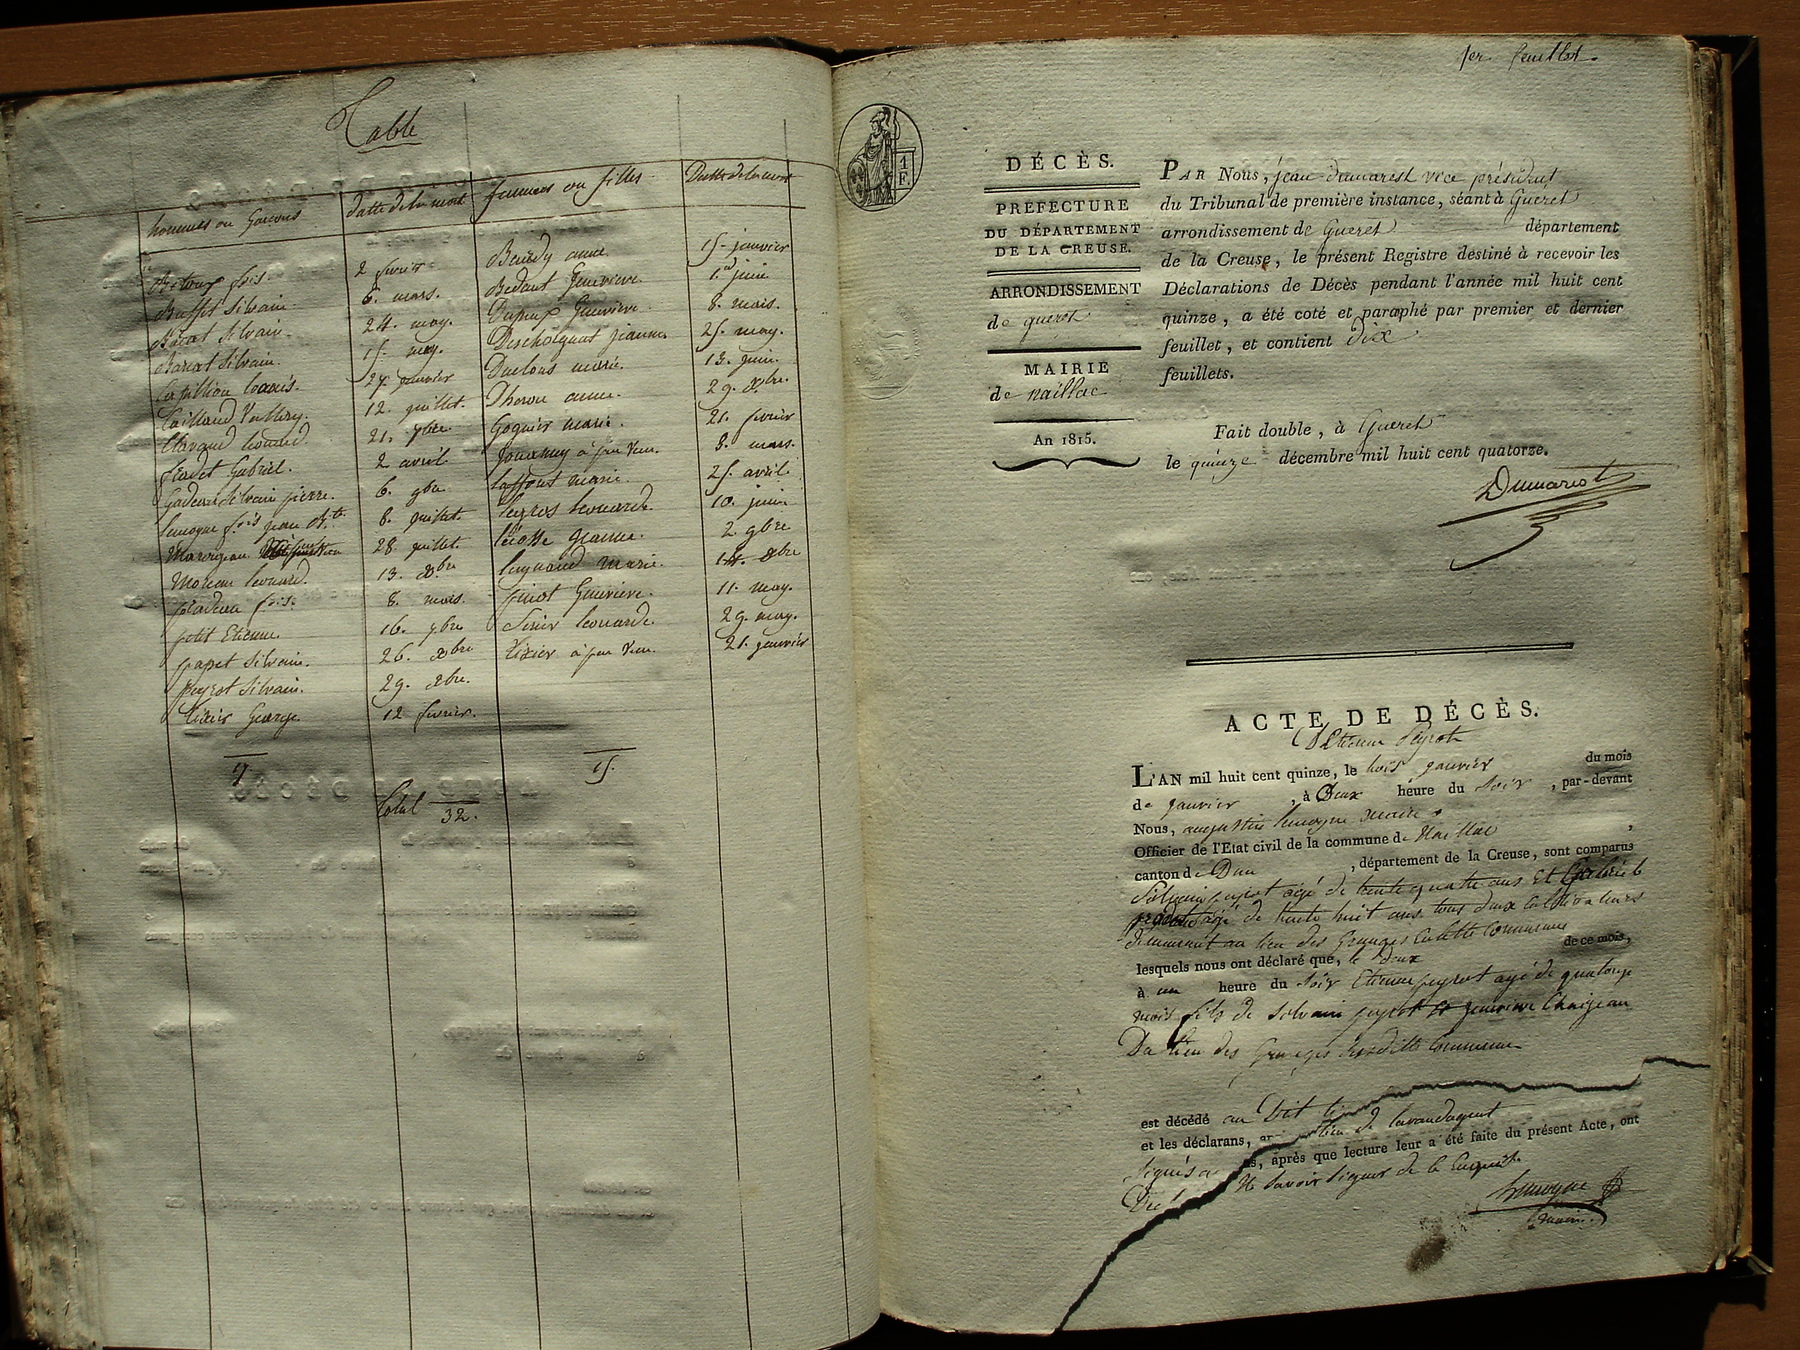 Table
hommes ou Garcons
datte de la mort
femmes ou filles
Datte de la mort
fois. 2 fevrier Baudy anne 15. janvier
Buffet Silvain 6. mars. Bedaut Genevieve 1er juin
Barat Silvain. 24. may. Dupuy Genevieve 8. mars.
Bariat Silvain. 15. may. jeanne. 25. may.
Louis. 27 janvier Duclous marie. 13. juin.
Taillaud 12. juillet. Dhorou anne. 29. xbre.
Clavaud Leonard 21. 7bre Goguier marie. 21. fevrier
fradet Gabriel. 2 avril à jean 8. mars.
Silvain pierre. 6. 9bre Laffont marie. 25. avril.
Lemoyne fois jean Bte 8. juillet. Legros Leonarde 10. juin
28. juillet. jeanne. 2 9bre
Moreau Leonard. 13. xbre marie. 14. xbre
pradeau fois. 8. mars. pinot Genevieve. 11. may.
petit Etienne. 16. 9bre Leonarde 29. may.
papet Silvain. 26. xbre tixier à jean 21. janvier
peyrot Silvain. 29. xbre.
tixier George. 12 fevrier.
17 15.
Total 32.
1er. feuillet.
1 F.
DÉCÈS.
PRÉFECTURE
DU DÉPARTEMENT
DE LA CREUSE.
ARRONDISSEMENT
de gueret
MAIRIE
de naillac
An 1815.
PAR Nous, jean dumarest vice président
du Tribunal de première instance, séant à Gueret
arrondissement de Gueret département
de la Creuse, le présent Registre destiné à recevoir les
Déclarations de Décès pendant l'année mil huit cent
quinze, a été coté et paraphé par premier et dernier
feuillet, et contient dix
feuillets.
Fait double, à Gueret
le quinze décembre mil huit cent quatorze.
Dumarest
ACTE DE DÉCÈS.
D'Etienne Peyrot
L'AN mil huit cent quinze, le trois janvier du mois
de janvier, à Deux heure du soir, par-devant
Nous, augustin lemoyne maire
Officier de l'Etat civil de la commune de Naillac,
canton de Dun, département de la Creuse, sont comparus
Silvain peyrot agé de trente quatre ans et Gabriel
pradeau agé de trente huit ans tous deux cultivateurs
demeurant au lieu des Granges en cette Commune
lesquels nous ont déclaré que, le deux de ce mois,
à un heure du soir Etienne peyrot agé de quatorze
mois fils de Silvain peyrot et genevieve Chaizeau
Du lieu des Granges susditte Commune
est décédé au Dit
et les déclarans,
, après que lecture leur a été faite du présent Acte, ont
ne savoir signer de ce
Lemoyne
maire